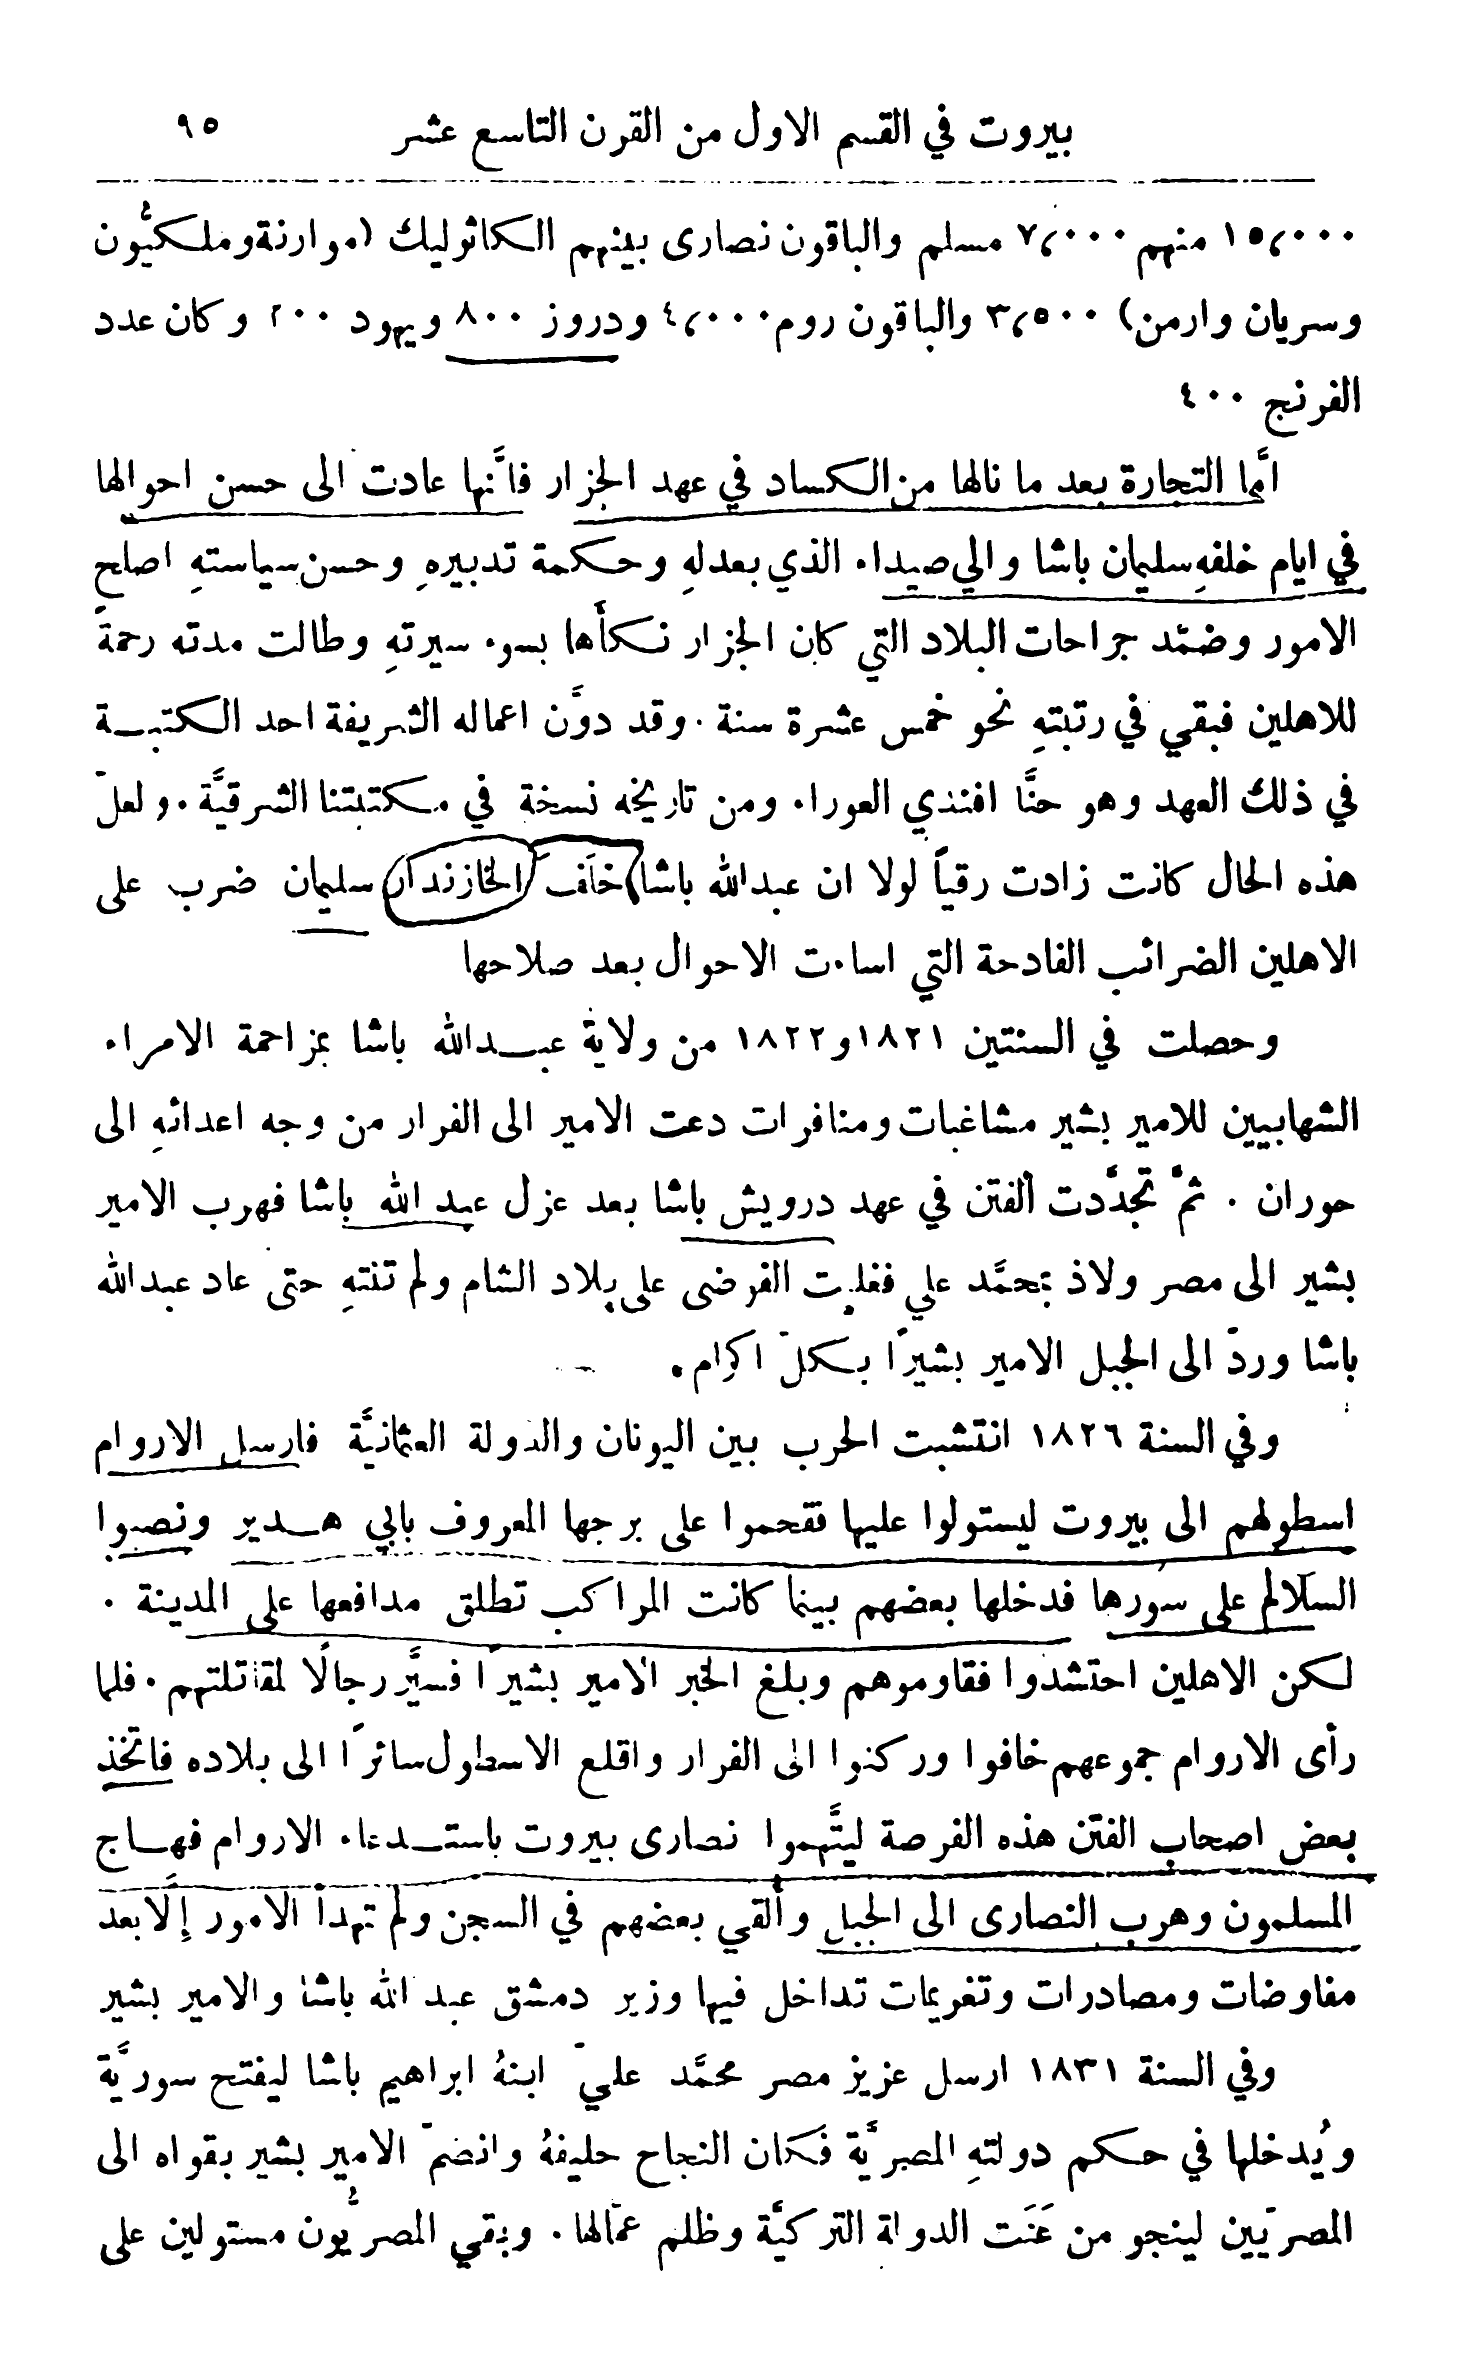 بيروت في القسم الاول من القرن التاسع عشر ٩٥
١٥,٠٠٠ منهم ٧,٠٠٠ مسلم والباقون نصارى بينهم الكاثوليك (موارنة وملكيُّون
وسريان وارمن) ٣,٥٠٠ والباقون روم ٤,٠٠٠ ودروز ٨٠٠ ويهود ٢٠٠ وكان عدد
الفرنج ٤٠٠
امَّا التجارة بعد ما نالها من الكساد في عهد الجزار فانَّها عادت الى حسن احوالها
في ايام خلفهِ سليمان باشا والي صيداء الذي بعدلهِ وحكمة تدبيرهِ وحسن سياستهِ اصلح
الامور وضمَّد جراحات البلاد التي كان الجزار نكأَها بسوء سيرتهِ وطالت مدته رحمةً
للاهلين فبقي في رتبتهِ نحو خمس عشرة سنة . وقد دوَّن اعماله الشريفة احد الكتبـة
في ذلك العهد وهو حنَّا افندي العوراء ومن تاريخه نسخة في مكتبتنا الشرقيَّة . ولعلّ
هذه الحال كانت زادت رقياً لولا ان عبدالله باشا خلَفَ الخازندار سليمان ضرب على
الاهلين الضرائب الفادحة التي اساءت الاحوال بعد صلاحها
وحصلت في السنتين ١٨٢١ و١٨٢٢ من ولاية عبـدالله باشا بمزاحمة الامراء
الشهابيين للامير بشير مشاغبات ومنافرات دعت الامير الى الفرار من وجه اعدائهِ الى
حوران . ثمَّ تجدَّدت الفتن في عهد درويش باشا بعد عزل عبد الله باشا فهرب الامير
بشير الى مصر ولاذ بمحمَّد علي فغلبت الفوضى على بلاد الشام ولم تنتهِ حتى عاد عبدالله
باشا وردّ الى الجبل الامير بشيرًا بكلّ اكرام .
وفي السنة ١٨٢٦ انتشبت الحرب بين اليونان والدولة العثمانيَّة فارسل الاروام
اسطولهم الى بيروت ليستولوا عليها فقحموا على برجها المعروف بابي هـدير ونصبوا
السلالم على سورها فدخلها بعضهم بينما كانت المراكب تطلق مدافعها على المدينة .
لكن الاهلين احتشدوا فقاوموهم وبلغ الخبر الامير بشيرًا فسيَّر رجالًا لمقاتلتهم . فلما
رأى الاروام جموعهم خافوا وركنوا الى الفرار واقلع الاسطول سائرًا الى بلاده فاتخذ
بعض اصحاب الفتن هذه الفرصة ليتَّهموا نصارى بيروت باستـدعاء الاروام فهـاج
المسلمون وهرب النصارى الى الجبل وأُلقي بعضهم في السجن ولم تهدأ الامور إلَّا بعد
مفاوضات ومصادرات وتغريمات تداخل فيها وزير دمشق عبد الله باشا والامير بشير
وفي السنة ١٨٣١ ارسل عزيز مصر محمَّد عليّ ابنهُ ابراهيم باشا ليفتح سوريَّة
ويُدخلها في حكم دولتهِ المصريَّة فكان النجاح حليفهُ وانضمّ الامير بشير بقواه الى
المصريّين لينجو من عَنَت الدولة التركيَّة وظلم عمّالها . وبقي المصريُّون مستولين على